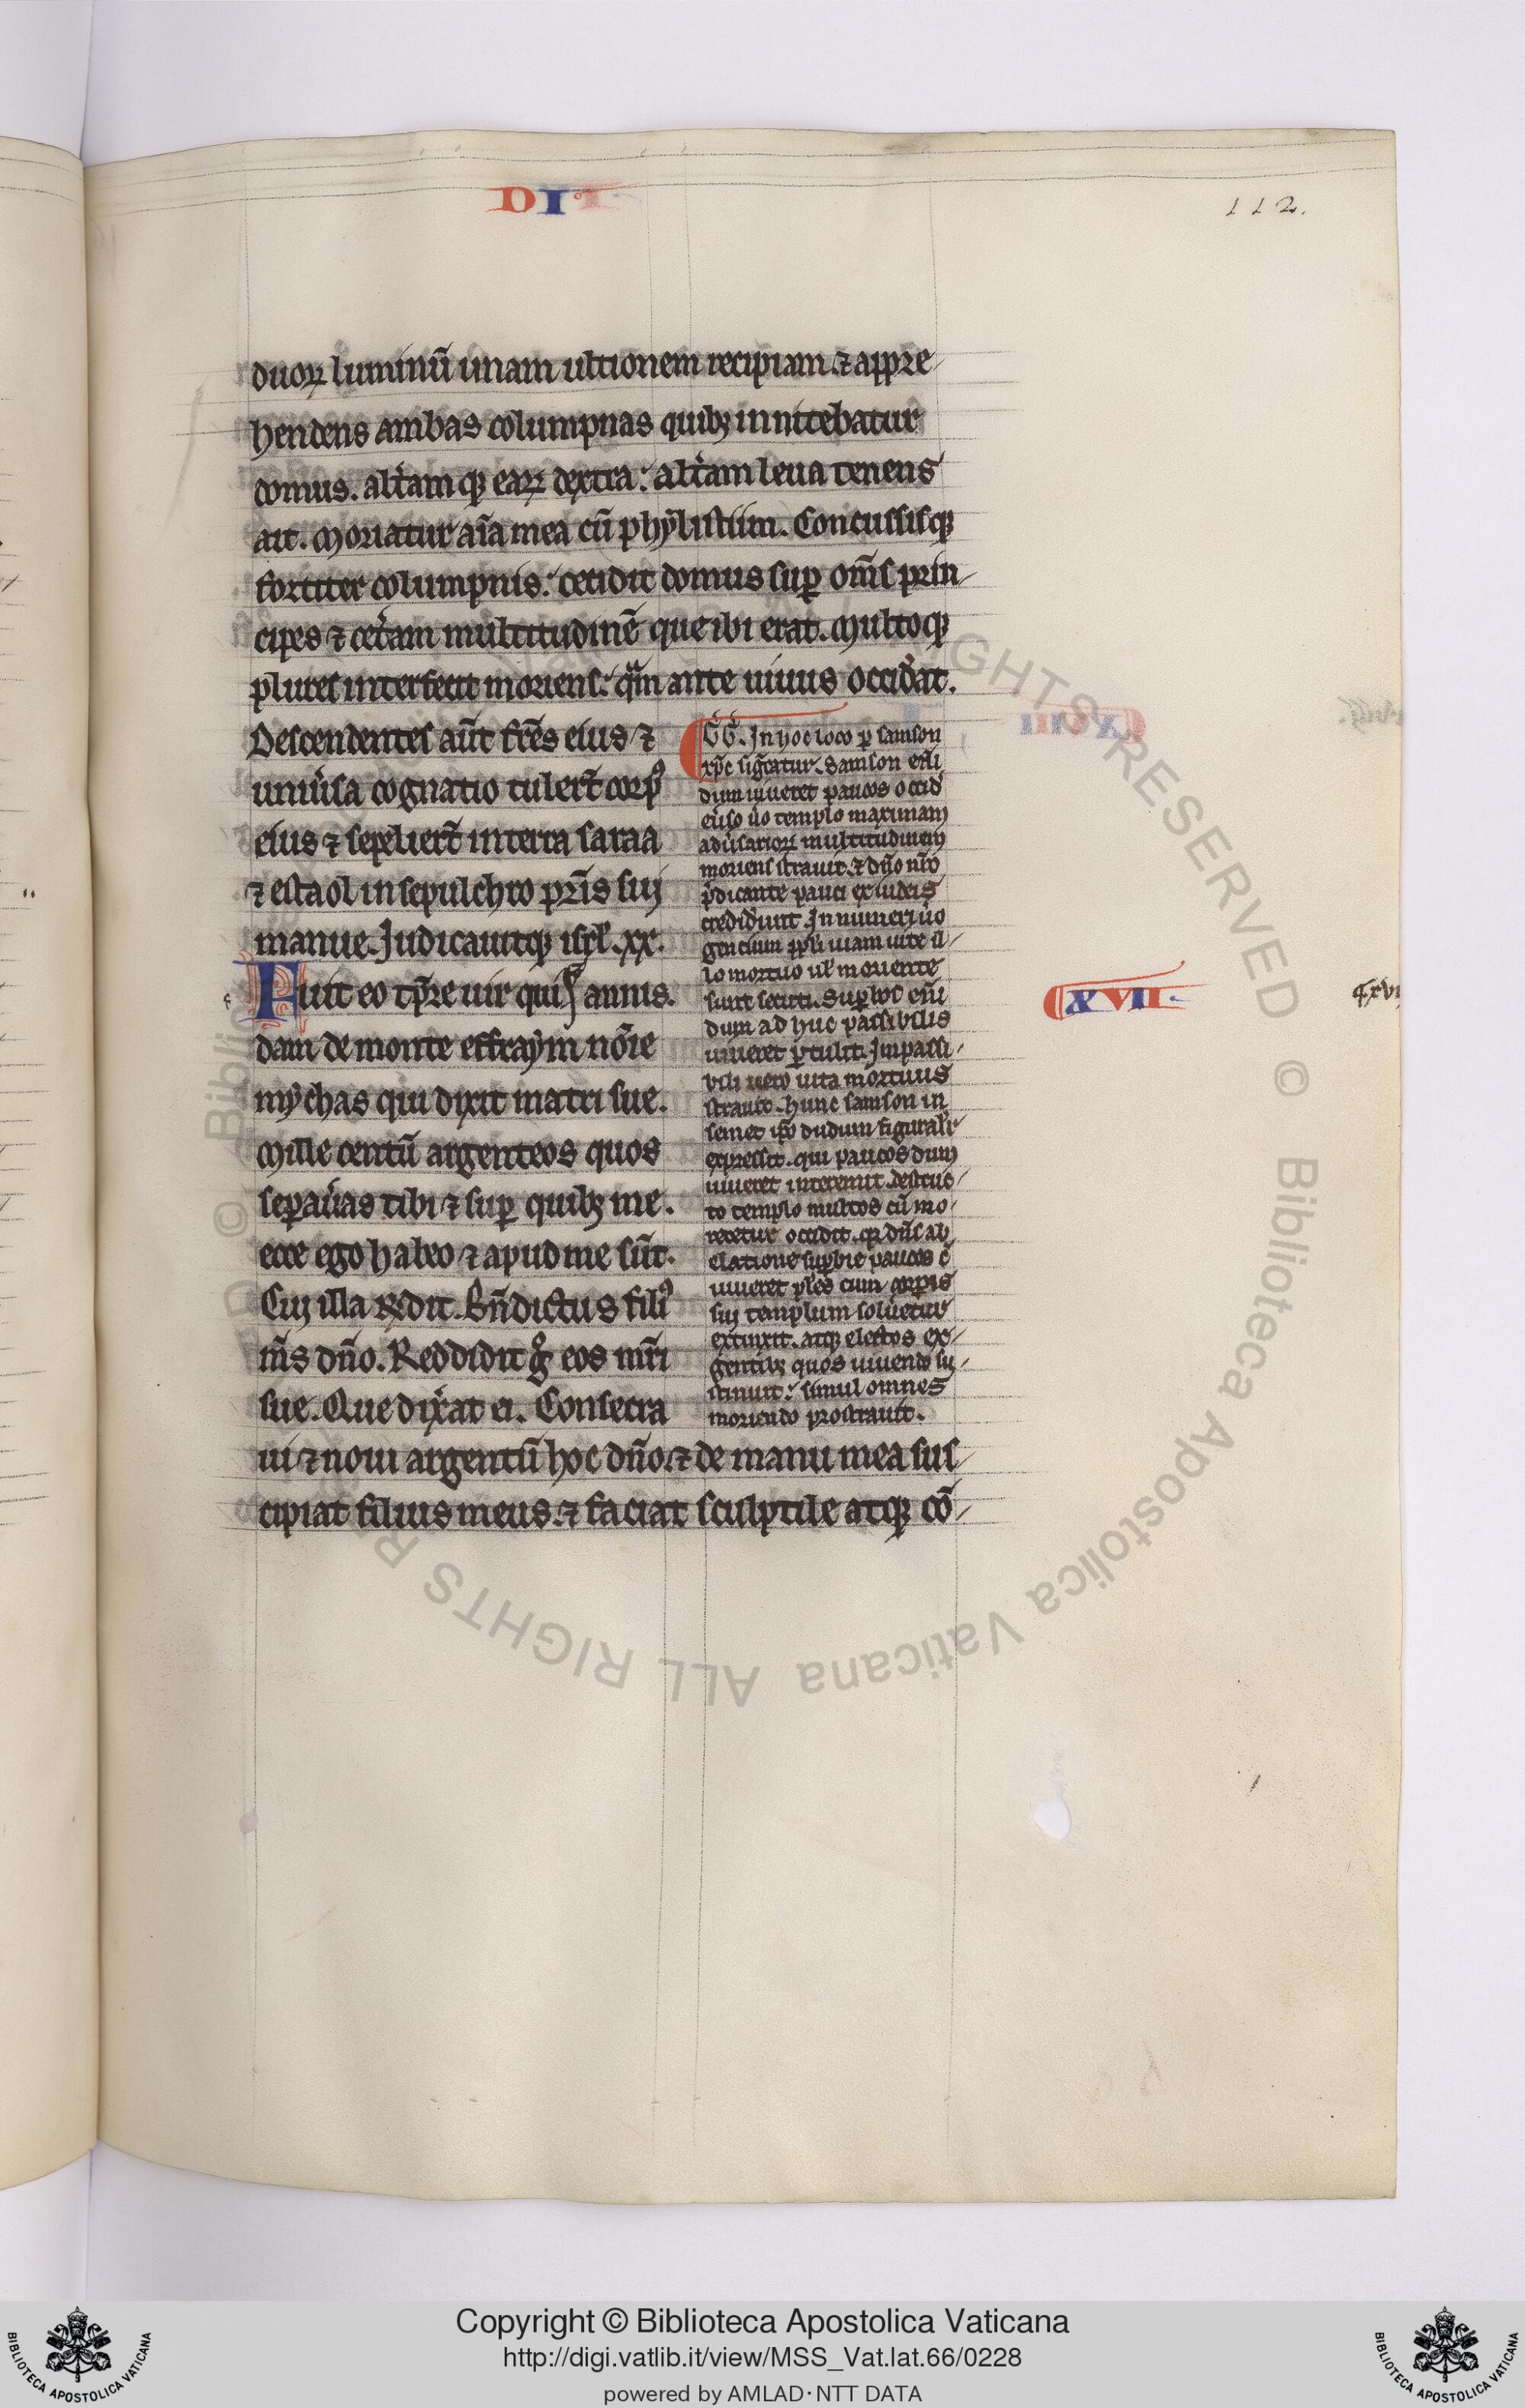 DI
112.
duoꝝ luminū unam ultionem recipiam ⁊ appre
hendens ambas columpnas quibꝫ innitebatur
domus. altam qꝫ eaꝝ dextra: altam leua tenens
ait. Moriatur aīa mea cū phylistiim. Concussisqꝫ
fortiter columpnis: cecidit domus suꝑ om̄s prin
cipes ⁊ cetam multitudinē que ibi erat. Multoqꝫ
plures interfecit moriens: qͣm ante uiuus occidat.
Descendentes aūt fr̄es eius ⁊
uniusa cognatio tulert̄ corpꝰ
eius ⁊ sepeliert̄ inter saraa
⁊ estaol in sepulchro pr̄is sui
manue. Judicauitqꝫ isrl̄. xx.
Fuit eo tp̄re uir quis annis.
dam de monte effraym nōie
mychas qui dixit matri sue.
Mille centū argenteos quos
seꝑauas tibi ⁊ suꝑ quibꝫ me.
ecce ego habeo ⁊ apud me sūt.
Cui illa rn̄dit. Bn̄dictus filiꝰ
m̄s dn̄o. Reddidit gͦ eos mr̄i
sue. Que dixat ei. Consecra
ui ⁊ noui argentū hoc dn̄o ⁊ de manu mea sus
cipiat filius meus ⁊ faciat sculptile atqꝫ cō
In hoc loco ꝑ samson
xp̄c sigcatur. Samson eni
dum uiueret paucos occid
euso uo templo maximam
adusarioꝝ multitudinem
moriens strauit ⁊ dn̄o nr̄o
p̄dicante pauci ex iudeis
credidunt. Innumeri uo
gencium ppl̄i uiam uite il
lo mortuo ul̄ moriente
sunt secuti. Suꝑbos eni
dum ad huc passibilis
uiueret ꝑtulit. Impassi
bili uero uita mortuus
strauit. hunc samson in
semet ipō dudum figuralit̄
expressit. qui paucos dum
uiueret interemit. destruc
to templo multos cū mo
reretur occidit. qꝫ dn̄s ab
elatione suꝑbie paucos cū
uiueret pl̄es cum corporis
sui templum solueretur
extinxit. atqꝫ electos ex
gentibꝫ quos uiuendo su
stinuit: simul omnes
moriendo prostrauit.
XVII.
Copyright © Biblioteca Apostolica Vaticana
http://digi.vatlib.it/view/MSS_Vat.lat.66/0228
powered by AMLAD·NTT DATA
BIBLIOTECA APOSTOLICA VATICANA
BIBLIOTECA APOSTOLICA VATICANA
© Biblioteca Apostolica Vaticana ALL RIGHTS RESERVED